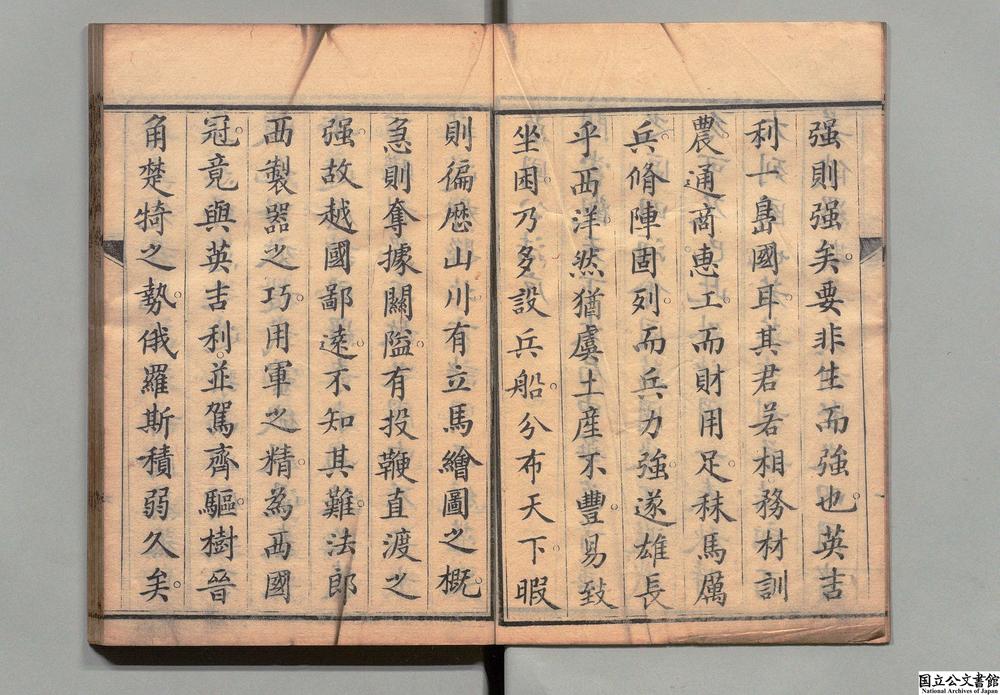 强則强矣。要非生而強也。英吉
利一島國耳。其君若相。務材訓
農。通商恵工而財用足。秣馬厲
兵。脩陣固列。而兵力強。遂雄長
乎西洋。然猶虞土産不豐。易致
坐困。乃多設兵船。分布天下。暇
則徧歴山川。有立馬繪圖之概。
急則奪據關隘。有投鞭直渡之
强。故越國鄙遠。不知其難。法郎
西製器之巧。用軍之精。為西國
冠。竟與英吉利。並駕齊驅。樹晉
角楚犄之勢。俄羅斯積弱久矣。
国立公文書館
National Archives of Japan